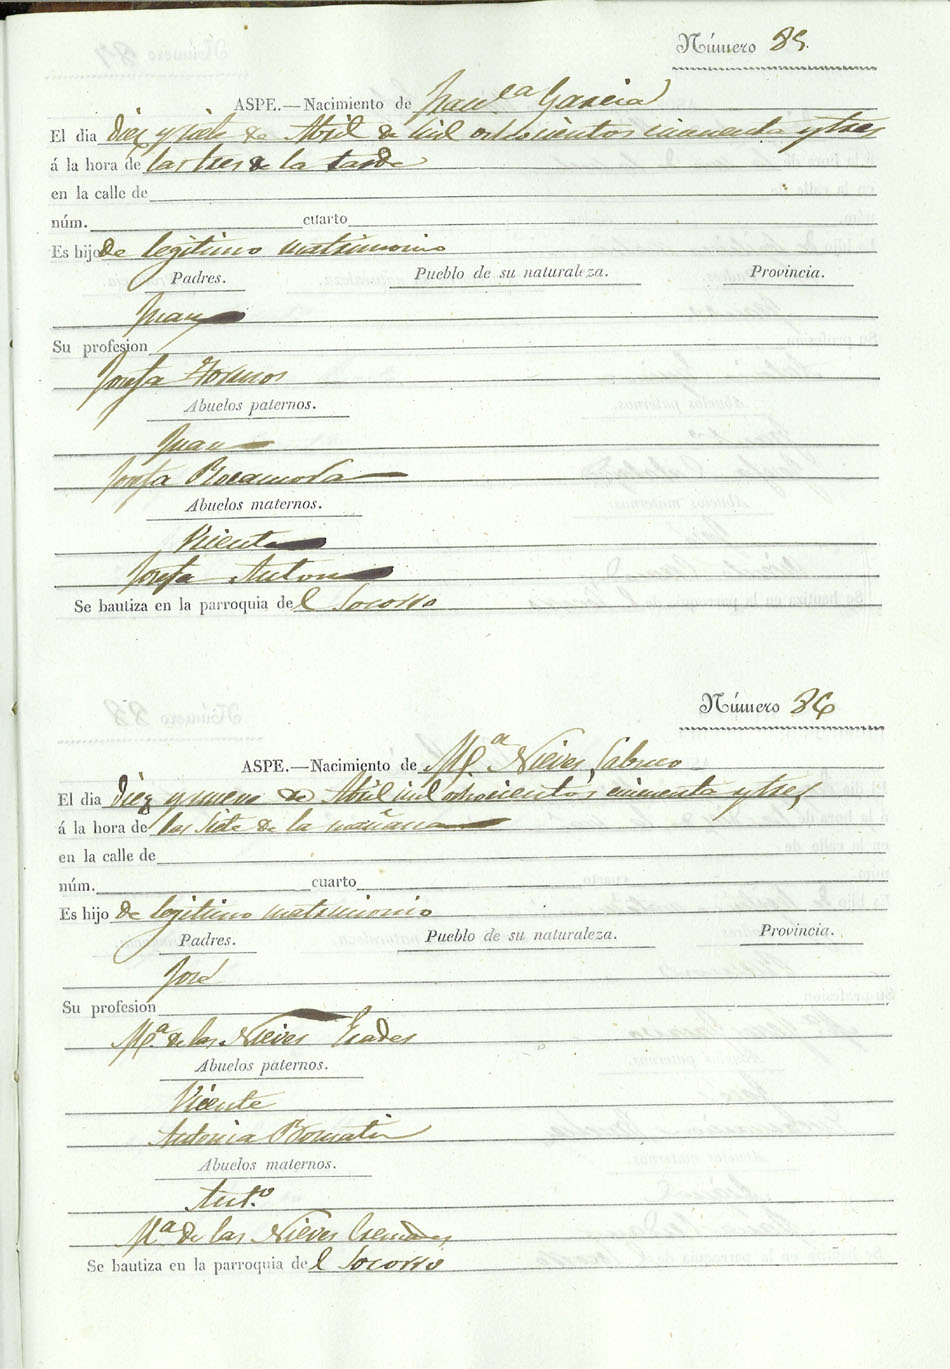 Número 85.
ASPE.—Nacimiento de Fran.ca Garcia
El dia diez y siete de Abril de mil ochocientos cincuenta y tres
á la hora de las tres de la tarde
en la calle de
núm. cuarto
Es hijo de legitimo matrimonio
Padres. Pueblo de su naturaleza. Provincia.
Juan
Su profesion
Josefa
Abuelos paternos.
Juan
Josefa Rocamora
Abuelos maternos.
Vicente
Josefa Anton
Se bautiza en la parroquia del Socorro
Número 86
ASPE.—Nacimiento de M.a Nieves Cabrero
El dia diez y nueve de Abril mil ochocientos cincuenta y tres
á la hora de las siete de la mañana
en la calle de
núm. cuarto
Es hijo de legitimo matrimonio
Padres. Pueblo de su naturaleza. Provincia.
José
Su profesion
M.a de las Nieves Prades
Abuelos paternos.
Vicente
Antonia
Abuelos maternos.
Ant.o
M.a de las Nieves Cremades
Se bautiza en la parroquia del Socorro